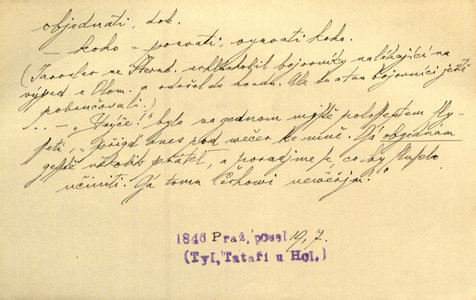 objednati, dok.
— koho — pozvati, vyzvati koho.
(Jaroslav ze Šternb. uchlácholil bojovníky naléhající na
výpad z Olom. a odešel do hradu. Ale bojovníci ještě
pobručovali.)
... — „Strýče!“ bylo najednou nyjšé pološeptem
„Přijď dnes pod večer ke mně. Já objednám
ještě několik přátel, a poradíme je, co by
učiniti. Já tomu Čechovi nevěřím.“
1846 Praž, posel 19, 7.
(Tyl, Tataři u Hol.)